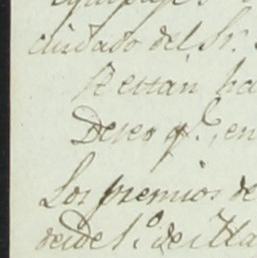 equipajes
cuidado del Sr.
Restan ha
Deseo q.e, en
Los premios de
desde 1.o de Ma